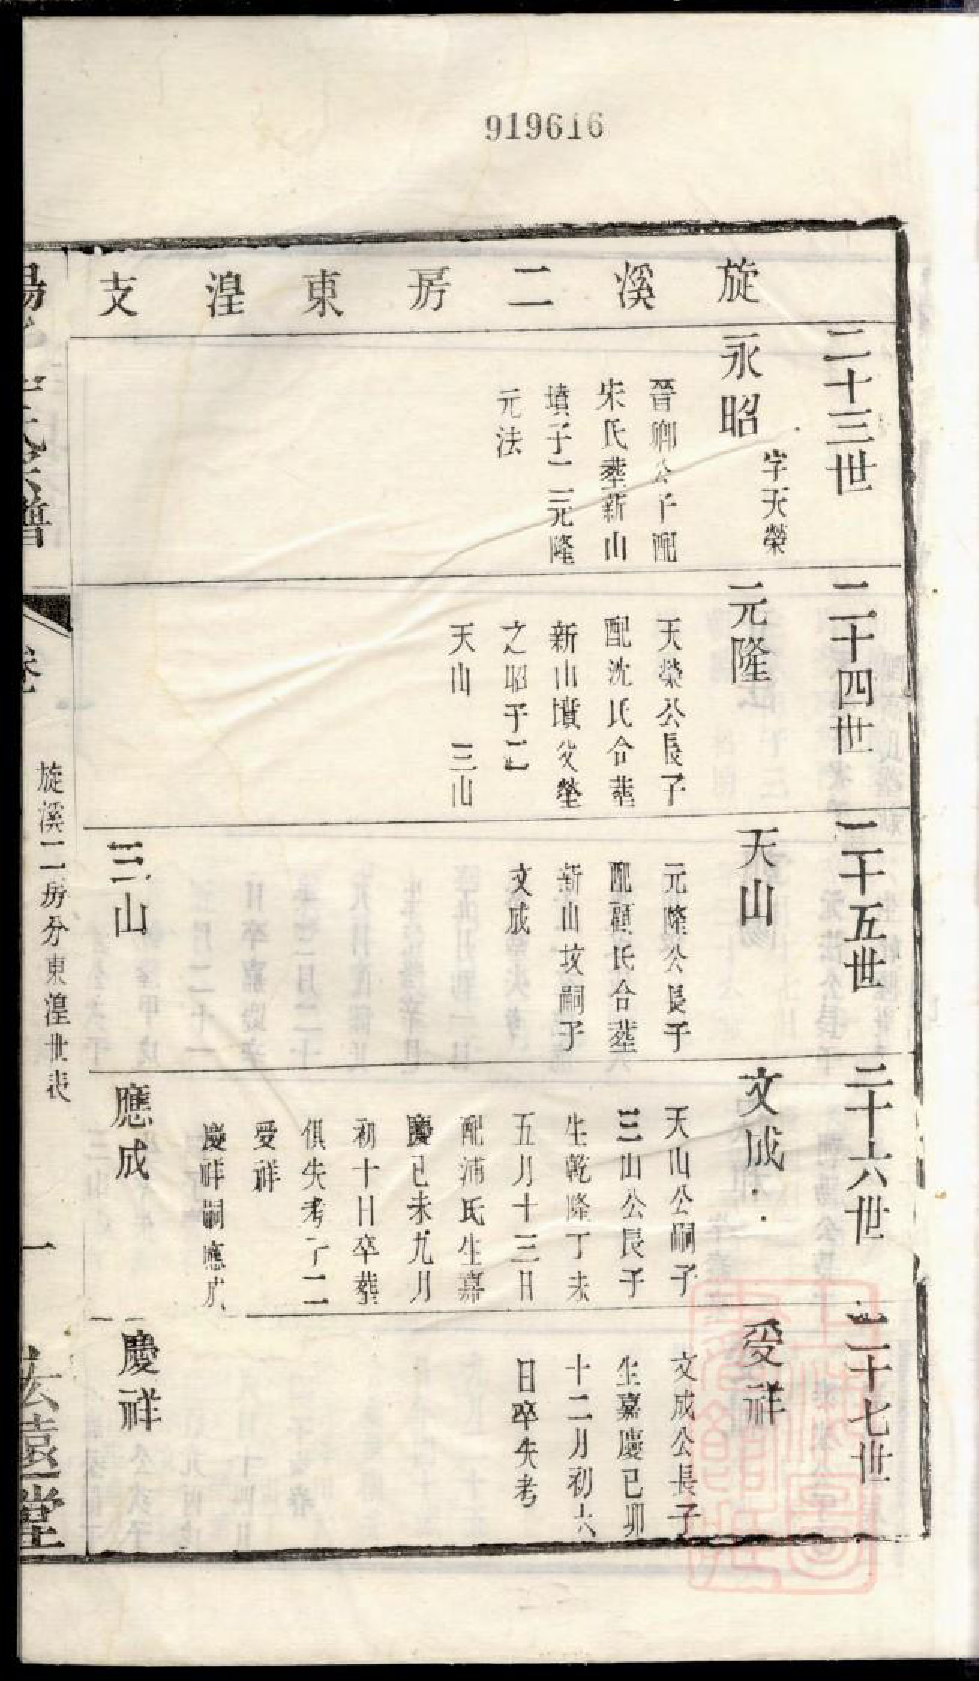 919616
旋溪二房東湟支
二十三世
永昭
字天榮
晉卿公子配
宋氏葬新山
墳子二元隆
元法
二十四世
元隆
天榮公長子
配沈氏合葬
新山墳父塋
之昭子二
天山 三山
二十五世
天山
元隆公長子
配顧氏合葬
新山坟嗣子
文成
三山
二十六世
文成
天山公嗣子
三山公長子
生乾隆丁未
五月十三日
配浦氏生嘉
慶己未九月
初十日卒葬
俱失考子二
受祥
慶祥嗣應成
應成
二十七世
受祥
文成公長子
生嘉慶己卯
十二月初六
日卒失考
慶祥
氏宗譜
卷
旋溪二房分東湟世表
一
遠堂